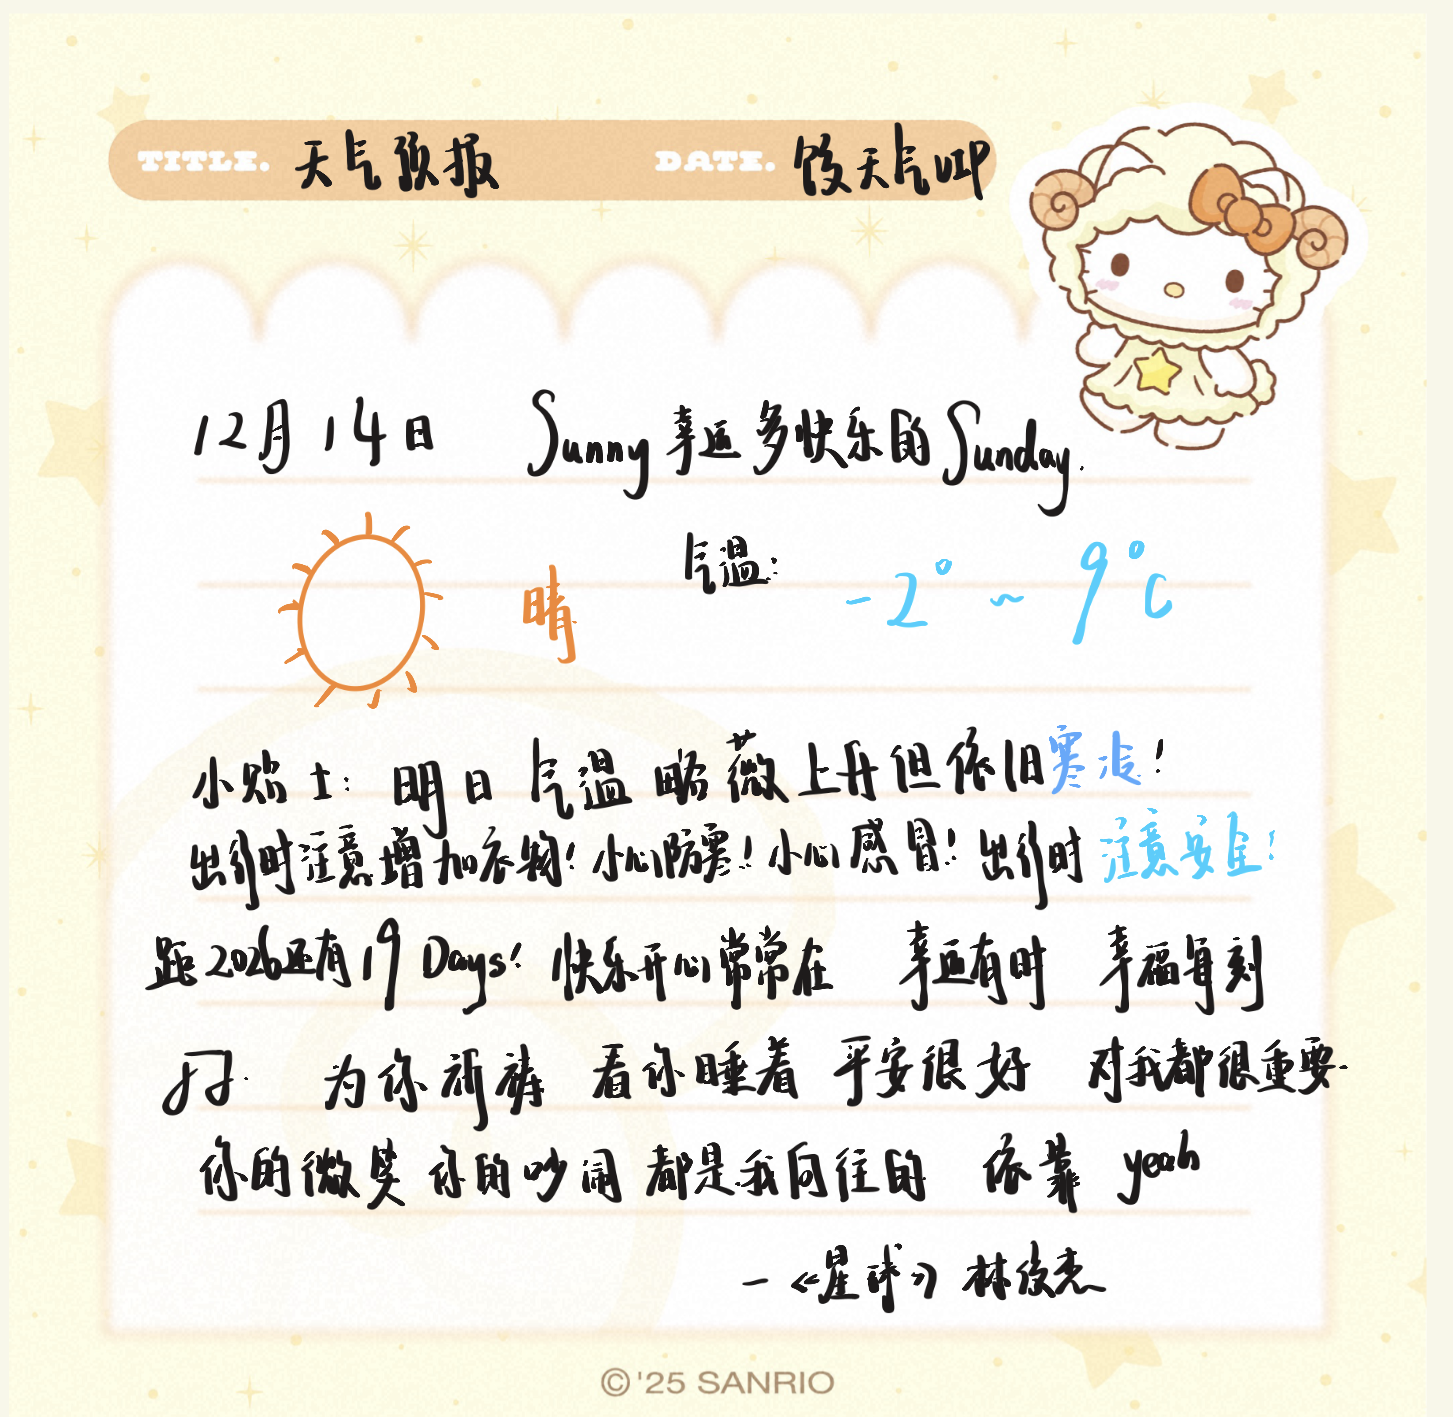 TITLE. 天气预报 DATE. 饺天气UIP
12月14日 Sunny 幸运多快乐的 Sunday.
气温:
晴 -2° ~ 9°C
小贴士: 明日气温略薇上升但依旧寒冷!
出行时注意增加衣物!小心防雾!小心感冒!出行时注意安全!
距2026还有19 Days! 快乐开心常常在 幸运有时 幸福每刻
好. 为你祈祷 看你睡着 平安很好 对我都很重要.
你的微笑 你的吵闹 都是我向往的 依靠 yeah
—《星球》 林俊杰
© '25 SANRIO